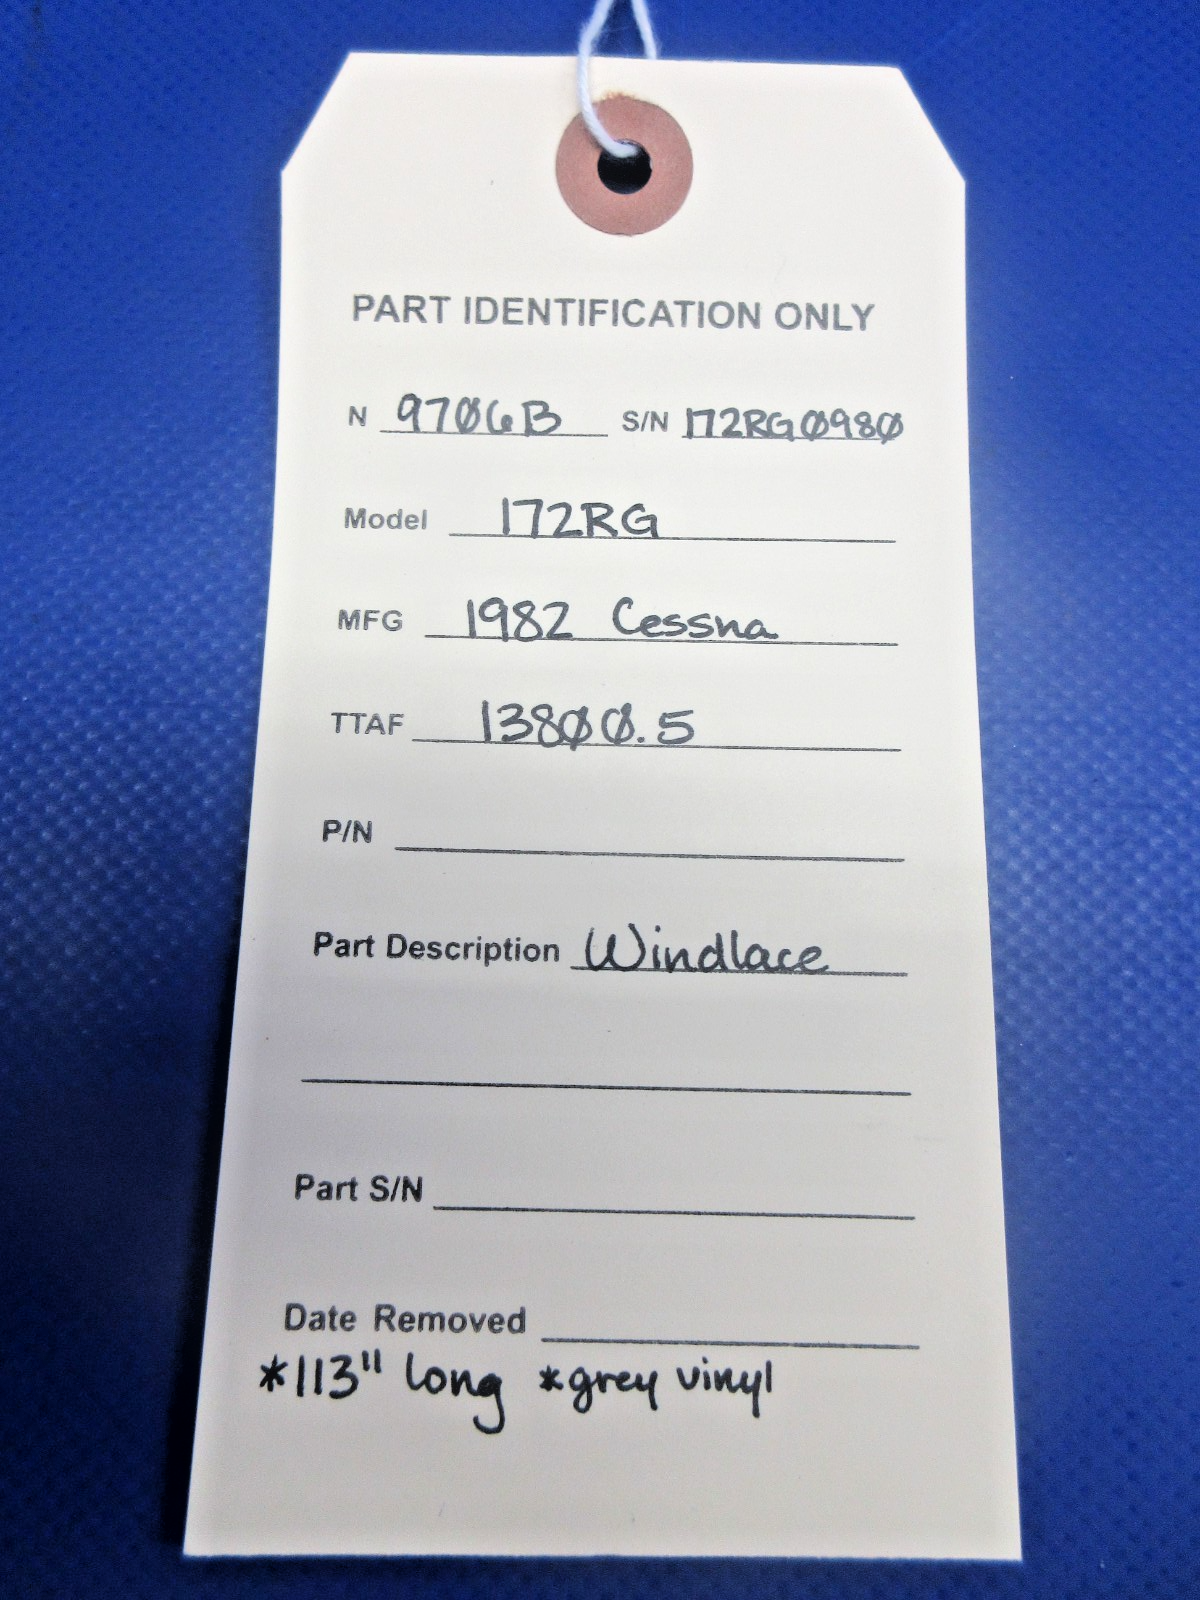 PART IDENTIFICATION ONLY
N 9706B S/N 172RG0980
Model 172RG
MFG 1982 Cessna
TTAF 13800.5
P/N
Part Description Windlace
Part S/N
Date Removed
*113" long *grey vinyl